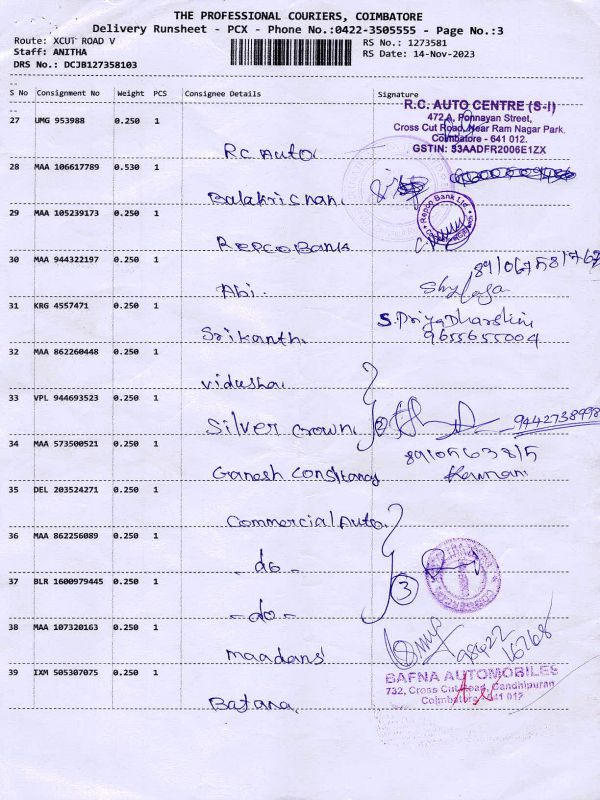 THE PROFESSIONAL COURIERS, COIMBATORE
Delivery Runsheet - PCX - Phone No.:0422-3505555 - Page No.:3
Route: XCUT ROAD V RS No.: 1273581
Staff: ANITHA RS Date: 14-Nov-2023
DRS No.: DCJB127358103
S No Consignment No Weight PCS Consignee Details Signature
R.C. AUTO CENTRE (S-I)
472 A, Ponnayan Street,
Cross Cut Road, Near Ram Nagar Park.
Coimbatore - 641 012.
GSTIN: 53AADFR2006E1ZX
27 UMG 953988 0.250 1
R.C. Auto
28 MAA 106617789 0.530 1
Balakrishnan
29 MAA 105239173 0.250 1
Repco Bank Ltd
REPCO BANK
30 MAA 944322197 0.250 1
Abi
31 KRG 4557471 0.250 1
S. Priya Dharshini
9655655004
Srikanth
32 MAA 862260448 0.250 1
Vidusha
33 VPL 944693523 0.250 1
Silver Crown 2 9442738998
34 MAA 573500521 0.250 1
8910563815
Ganesh
35 DEL 203524271 0.250 1
Commercial Auto
36 MAA 862256089 0.250 1
- do -
37 BLR 1600979445 0.250 1
3
- do -
38 MAA 107320163 0.250 1
98422
16768
Maadans
39 IXM 505307075 0.250 1
BAFNA AUTOMOBILES
732, Cross Cut Road, Gandhipuram
Coimbatore - 641 012
Bafana